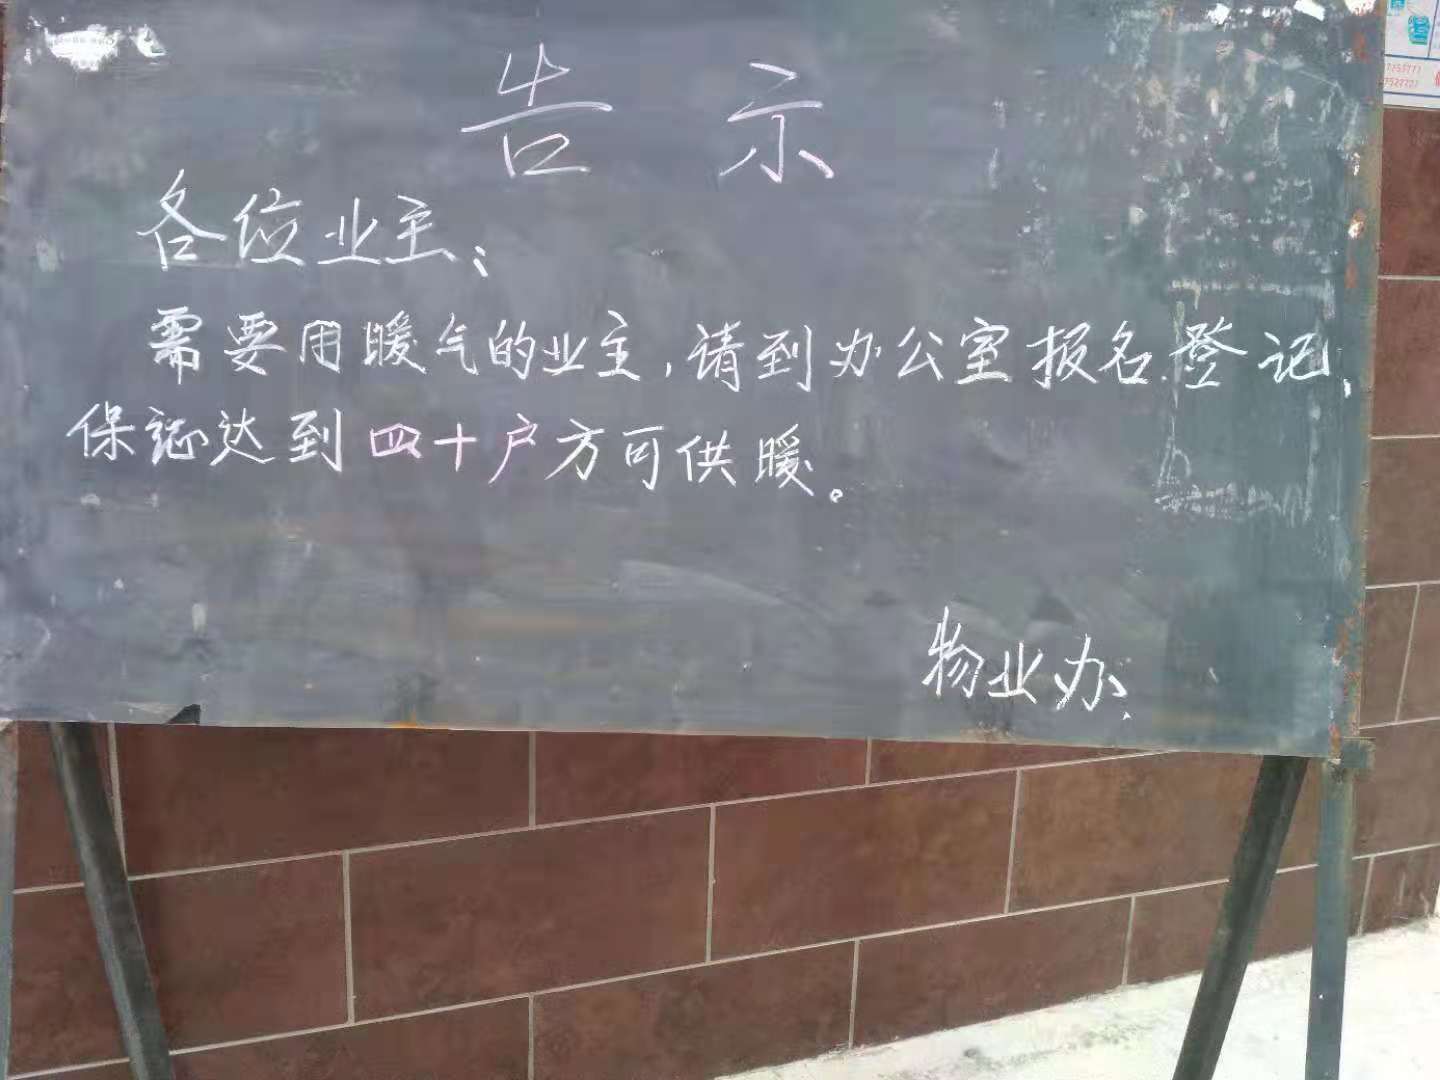 告示
各位业主：
需要用暖气的业主，请到办公室报名登记，
保证达到四十户方可供暖。
物业办